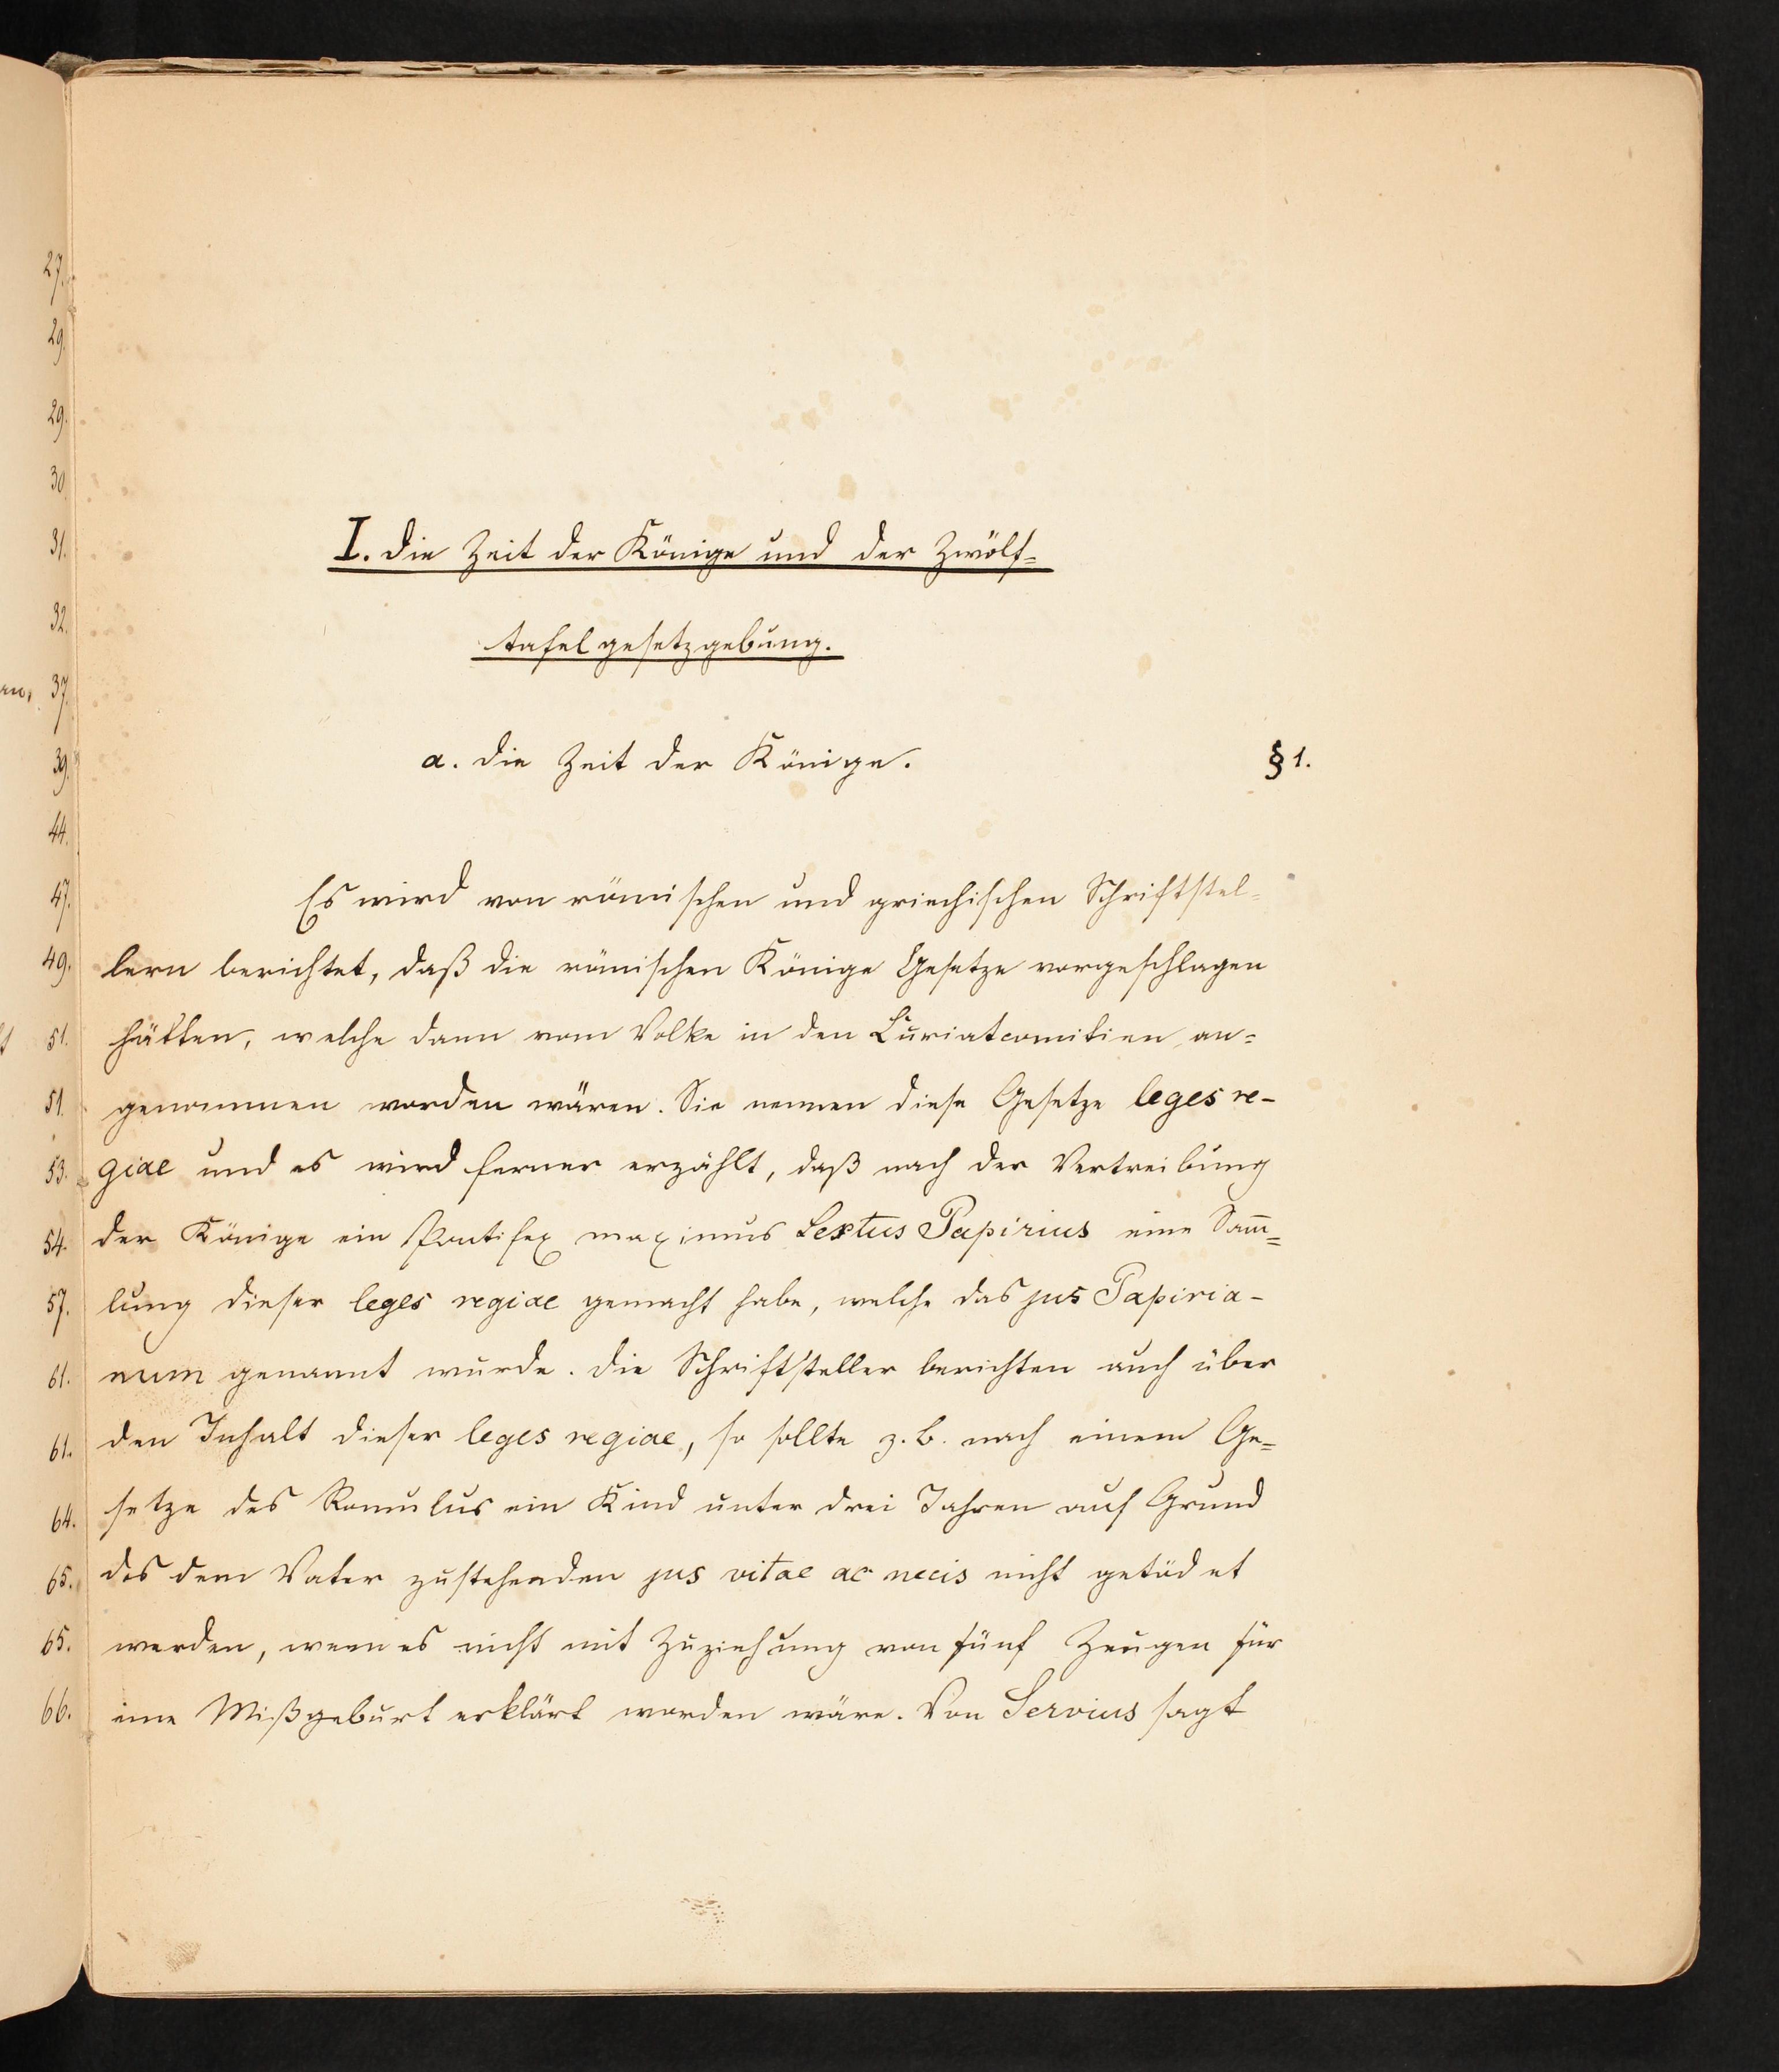 27.
29.
29.
30.
31.
32.
37.
39.
44.
47.
49.
51.
51.
53.
54.
57.
61.
61.
64.
65.
65.
66.
I. Die Zeit der Könige und der Zwölf-
tafelgesetzgebung.
a. Die Zeit der Könige. § 1.
Es wird von römischen und griechischen Schriftstel-
lern berichtet, daß die römischen Könige Gesetze vorgeschlagen
hätten, welche dann vom Volke in den Curiatcomitien an-
genommen worden wären. Sie nennen diese Gesetze leges re-
giae und es wird ferner erzählt, daß nach der Vertreibung
der Könige ein Pontifex maximus Sextus Papirius eine Sam̄-
lung dieser leges regiae gemacht habe, welche das jus Papiria-
num genannt wurde. Die Schriftsteller berichten auch über
den Inhalt dieser leges regiae, so sollte z. B. nach einem Ge-
setze des Romulus ein Kind unter drei Jahren auf Grund
des dem Vater zustehenden jus vitae ac necis nicht getödet
werden, wenn es nicht mit Zuziehung von fünf Zeugen für
eine Mißgeburt erklärt worden wäre. Von Servius sagt